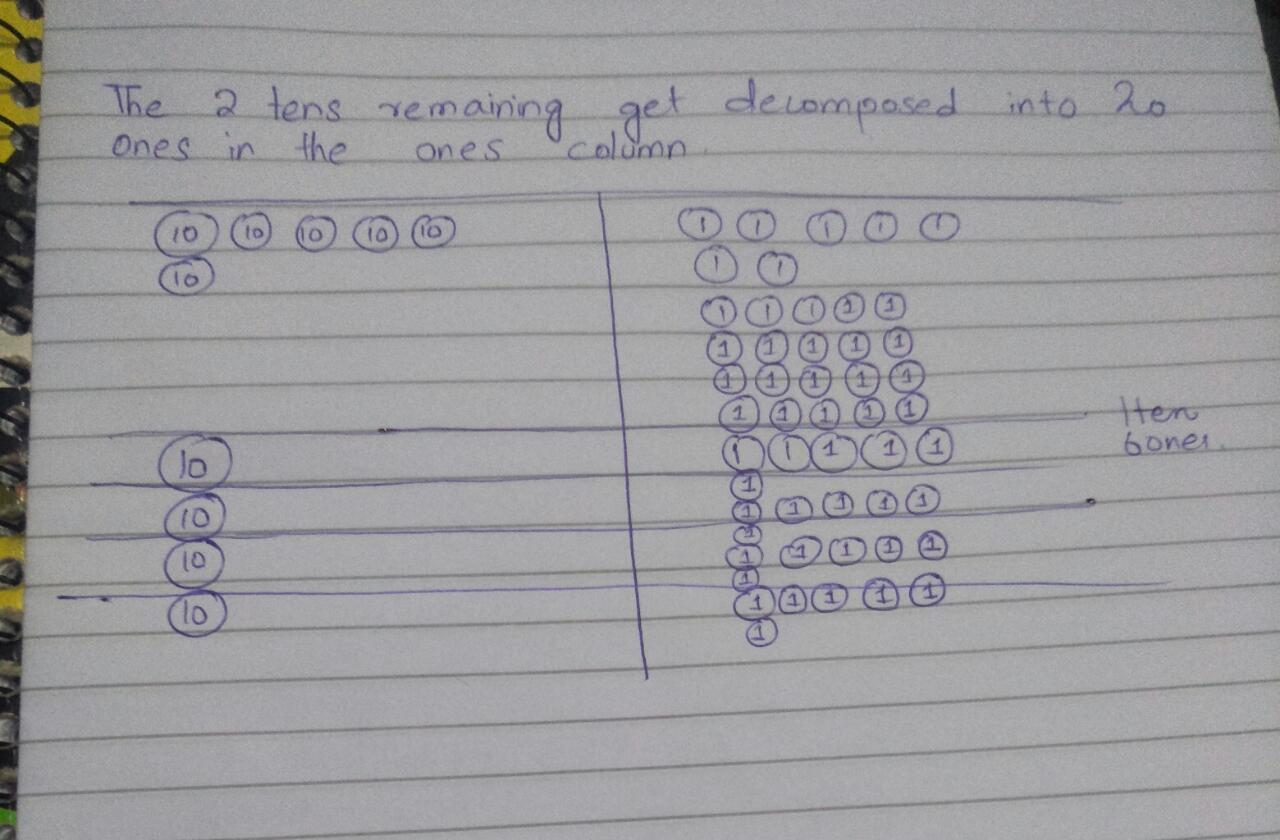 The 2 tens remaining get decomposed into 20
ones in the ones column.
10 10 10 10 10 1 1 1 1 1
10 1 1
1 1 1 1 1
1 1 1 1 1
1 1 1 1 1
1 1 1 1 1 1ten
10 1 1 1 1 1 6ones.
1
10 1 1 1 1 1
1
10 1 1 1 1 1
1
10 1 1 1 1 1
1